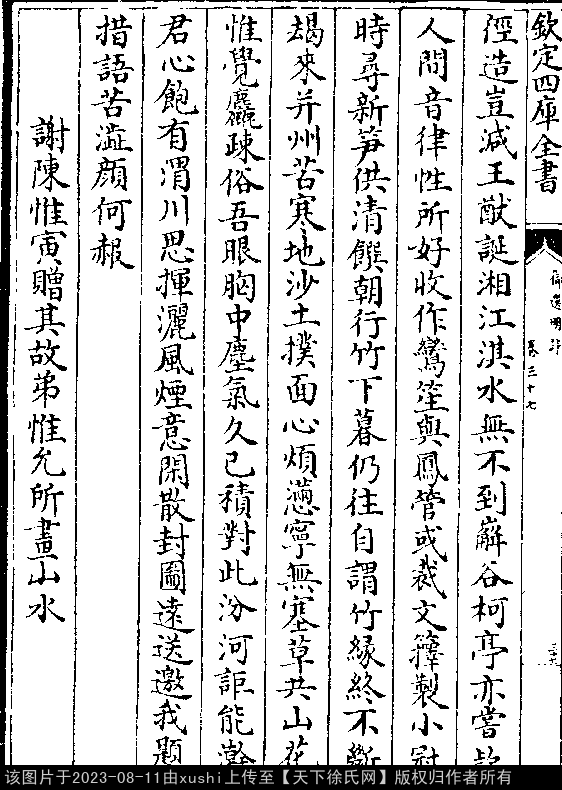 欽定四庫全書
御選明詩
卷三十七
徑造豈減王猷誕湘江淇水無不到嶰谷柯亭亦嘗
人間音律性所好收作鸞笙與鳳管或裁文籜製小冠
時尋新笋供清饌朝行竹下暮仍往自謂竹緣終不斷
朅來并州苦寒地沙土撲面心煩懣寧無塞草共山花
惟覺麤疎俗吾眼胸中塵氣久已積對此汾河詎能瀚
君心飽有渭川思揮灑風煙意閑散封圖遠送邀我題
措語苦澁顔何赧
謝陳惟寅贈其故弟惟允所畫山水
该图片于2023-08-11由xushi上传至【天下徐氏网】版权归作者所有